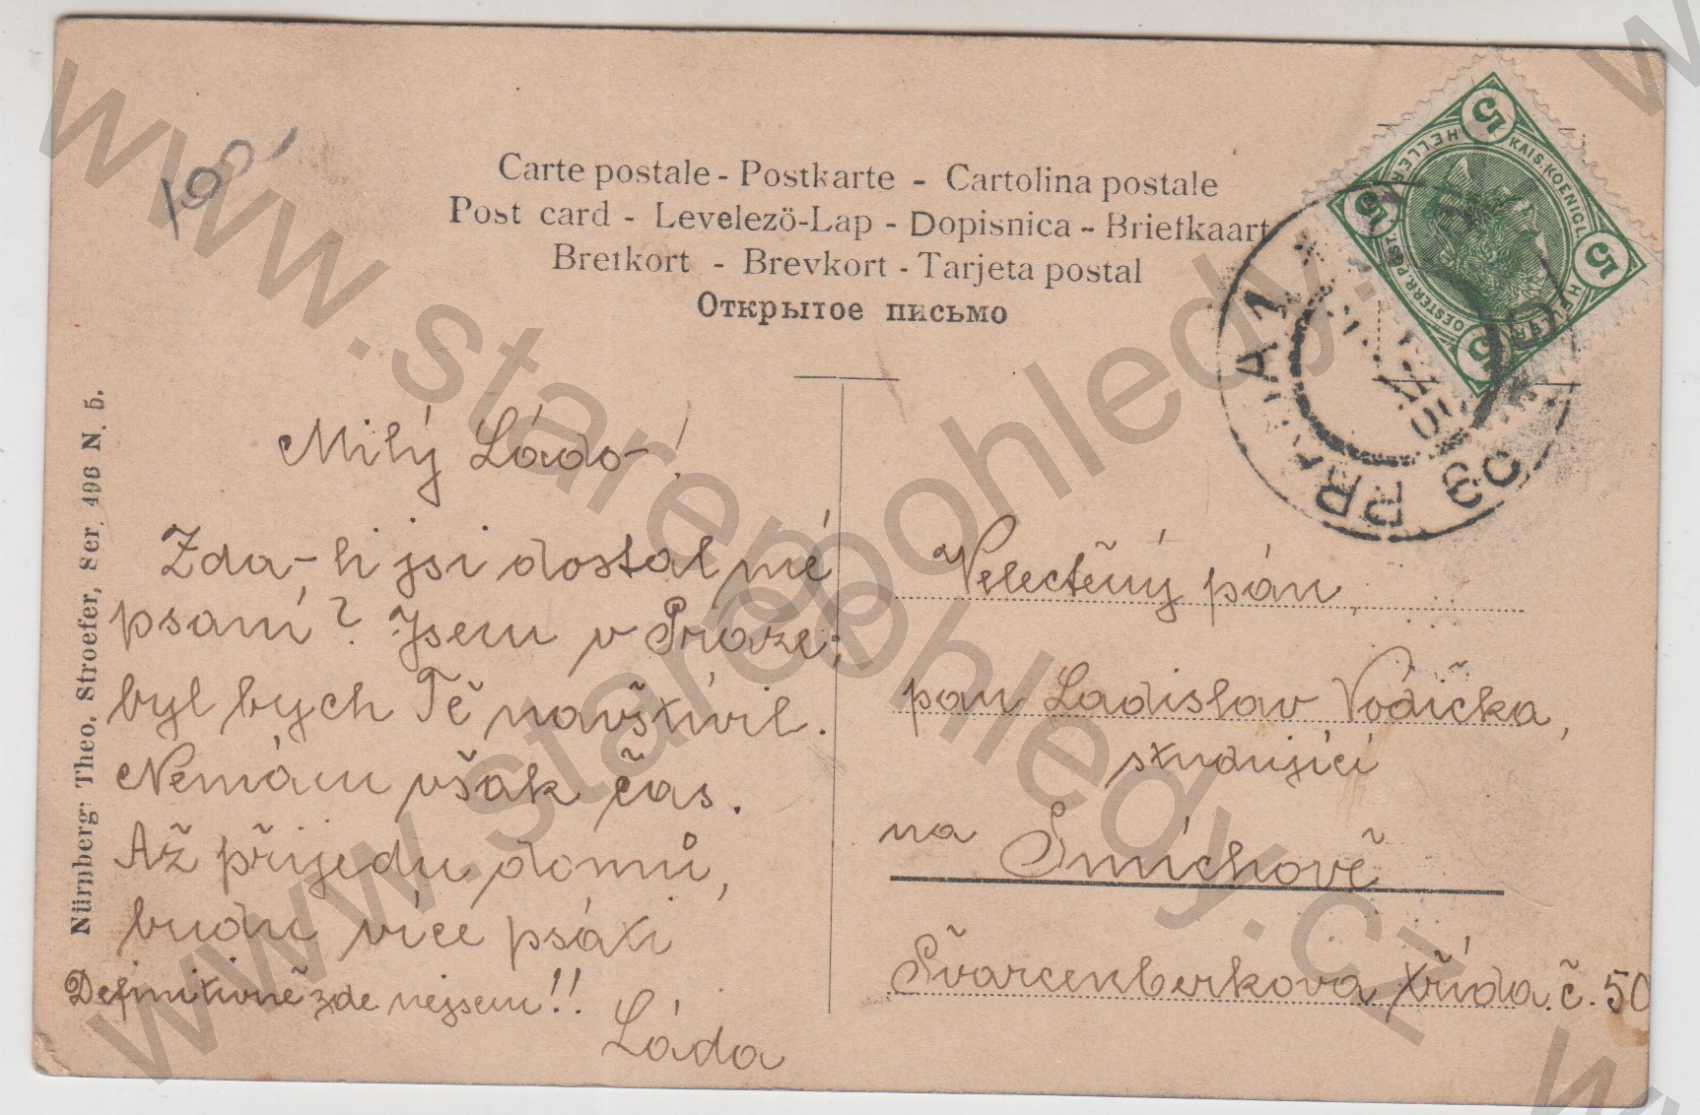 Carte postale - Postkarte - Cartolina postale
Post card - Levelezö-Lap - Dopisnica - Briefkaart
Brefkort - Brevkort - Tarjeta postal
Открытое письмо
Nürnberg: Theo. Stroefer, Ser. 496 N. 5.
Milý Ládo!
Zda-li jsi dostal mé
psaní? Jsem v Praze;
byl bych Tě navštívil.
Nemám však čas.
Až přijedu domů,
budu více psáti
Definitivně zde nejsem!!
Láda
Velectěný pán,
pan Ladislav Vodička,
studující
na Smíchově
Švarcenberkova třída č. 50
5 5 5 5
KAIS. KOENIGL.
OESTERR. POST.
HELLER HELLER
1
www.starepohledy.cz
www.starepohledy.cz